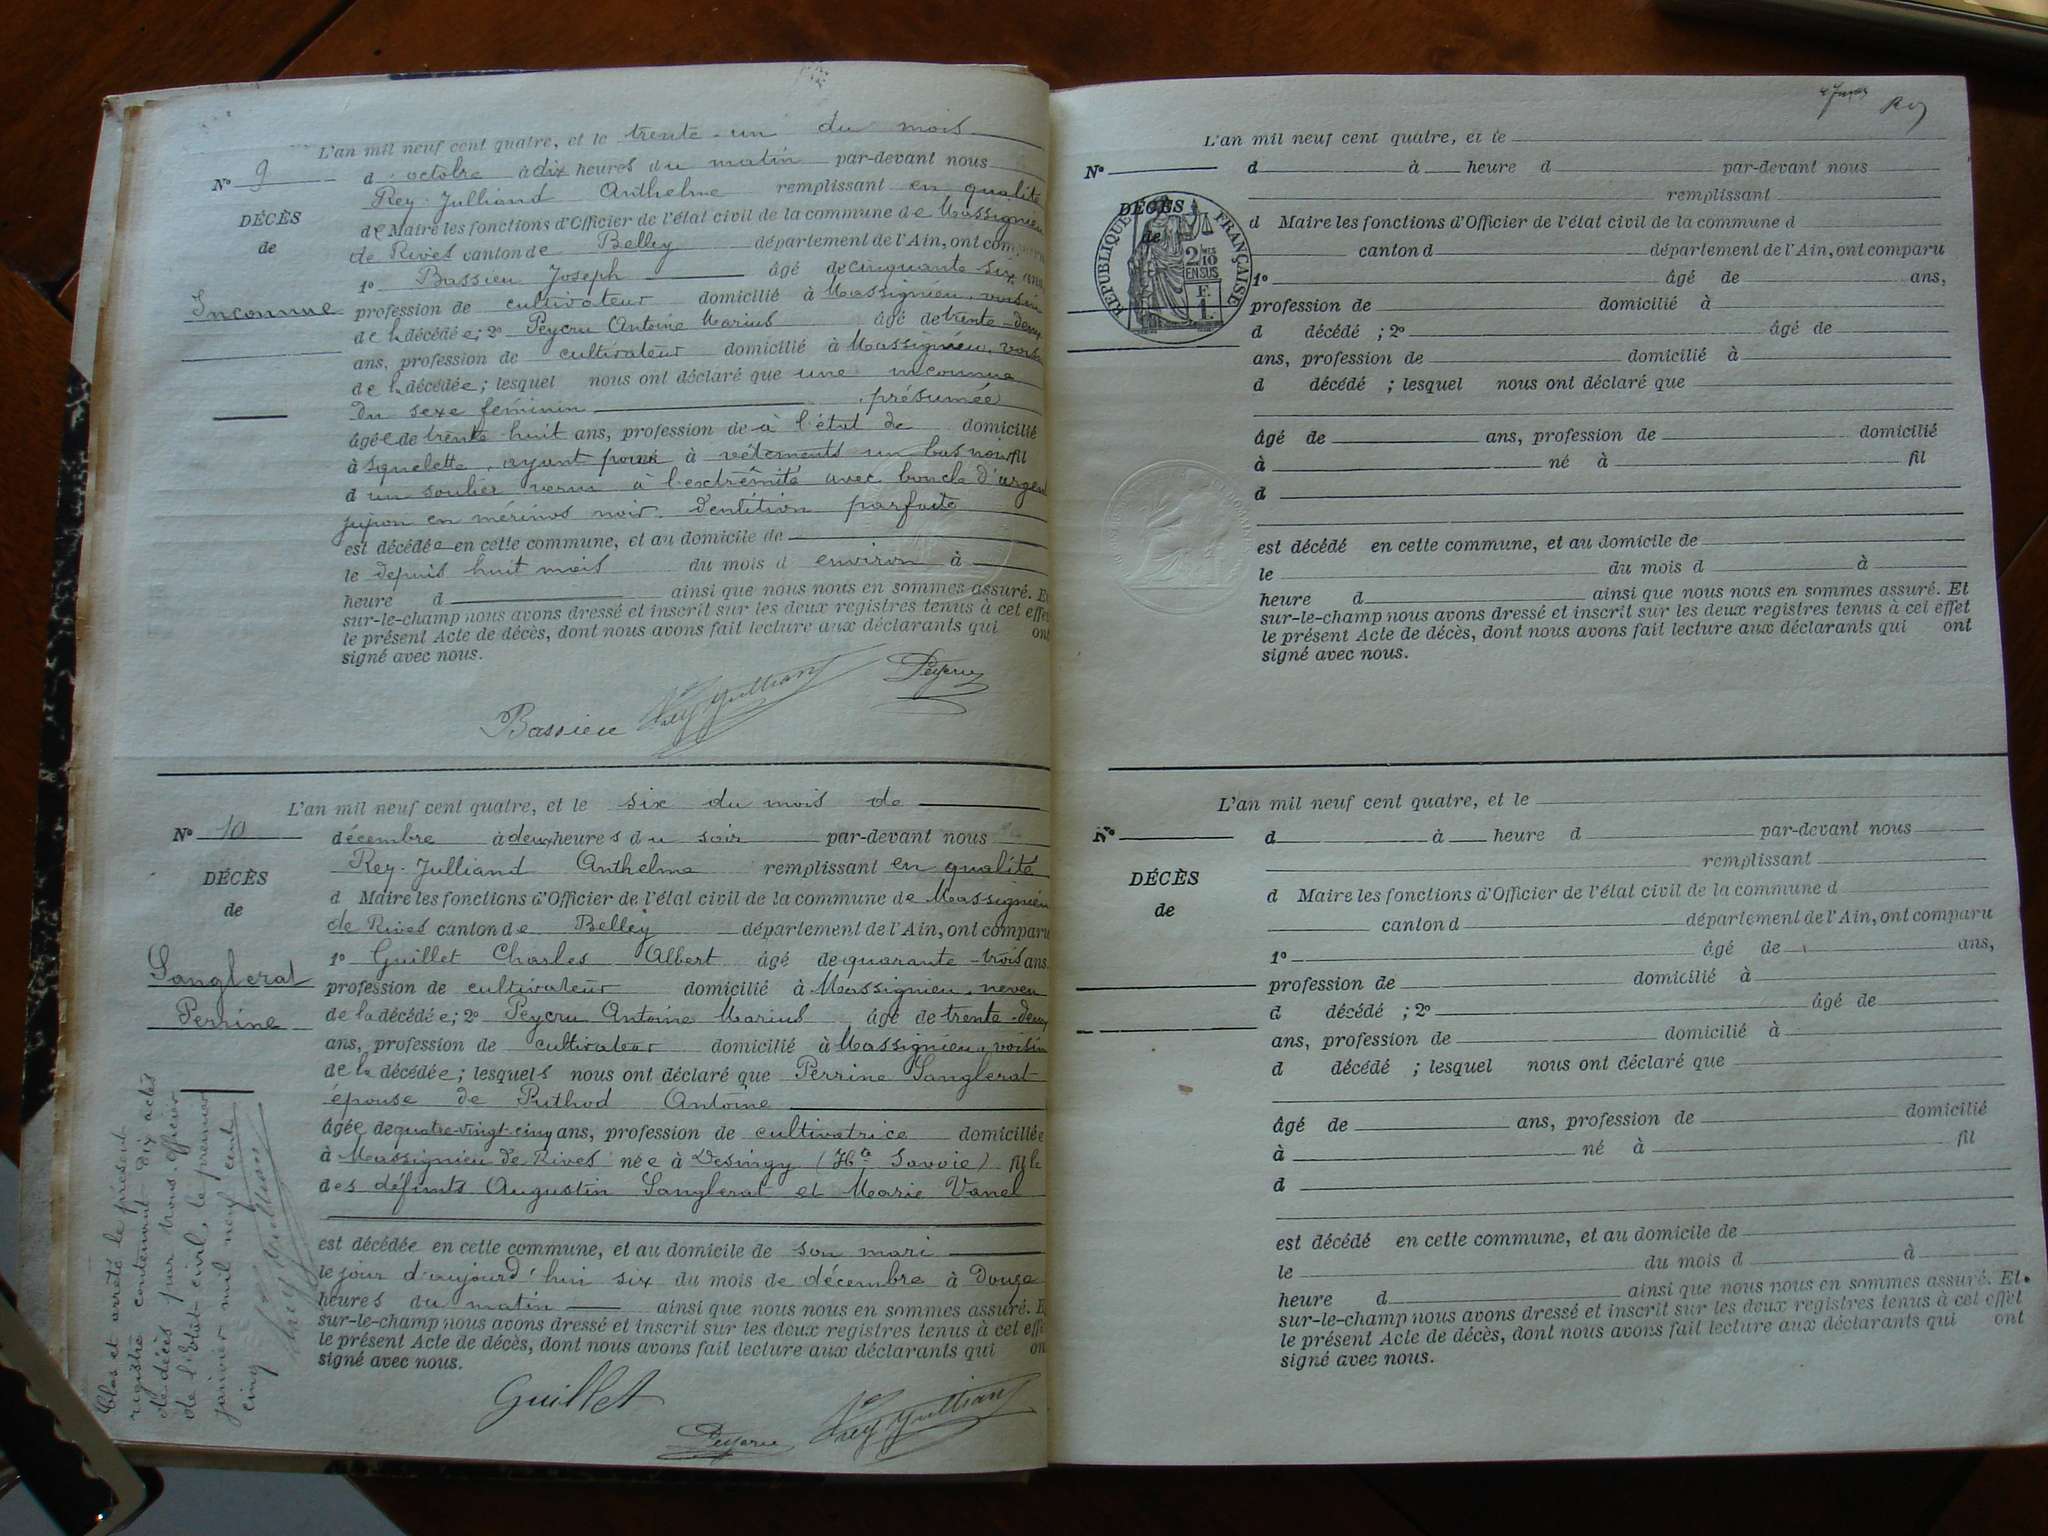 L'an mil neuf cent quatre, et le trente-un du mois
N° 9
d'octobre à dix heures du matin par-devant nous
Rey-Julliand Anthelme remplissant en qualité
DÉCÈS
de
de Maire les fonctions d'Officier de l'état civil de la commune de Massignieu
de Rives canton de Belley département de l'Ain, ont comparu
1° Bassieu Joseph âgé de cinquante-six ans,
Inconnue
profession de cultivateur domicilié à Massignieu, voisin
de la décédée; 2° Peycru Antoine Marius âgé de trente-deux
ans, profession de cultivateur domicilié à Massignieu, voisin
de la décédée; lesquel nous ont déclaré que une inconnue
du sexe féminin présumée
âgée de trente-huit ans, profession de à l'état de domicilié
à squelette, ayant pour à vêtements un bas noir fil
d un soulier verni à l'extrêmité avec boucle d'argent
jupon en mérinos noir. Dentition parfaite
est décédée en cette commune, et au domicile de
le depuis huit mois du mois d environ à
heure d ainsi que nous nous en sommes assuré. Et
sur-le-champ nous avons dressé et inscrit sur les deux registres tenus à cet effet
le présent Acte de décès, dont nous avons fait lecture aux déclarants qui ont
signé avec nous.
Bassieu Rey Julliand Peycru
L'an mil neuf cent quatre, et le six du mois de
N° 10
décembre à deux heures du soir par-devant nous
Rey-Julliand Anthelme remplissant en qualité
DÉCÈS
de
d Maire les fonctions d'Officier de l'état civil de la commune de Massignieu
de Rives canton de Belley département de l'Ain, ont comparu
1° Guillet Charles Albert âgé de quarante-trois ans
Sanglerat
Perrine
profession de cultivateur domicilié à Massignieu, neveu
de la décédée; 2° Peycru Antoine Marius âgé de trente-deux
ans, profession de cultivateur domicilié à Massignieu, voisin
de la décédée; lesquels nous ont déclaré que Perrine Sanglerat
épouse de Puthod Antoine
âgée de quatre-vingt-cinq ans, profession de cultivatrice domiciliée
à Massignieu de Rives née à Desingy (Hte Savoie) fille
des défunts Augustin Sanglerat et Marie Vanel
est décédée en cette commune, et au domicile de son mari
le jour d'aujourd'hui six du mois de décembre à Douze
heures du matin ainsi que nous nous en sommes assuré. Et
sur-le-champ nous avons dressé et inscrit sur les deux registres tenus à cet effet
le présent Acte de décès, dont nous avons fait lecture aux déclarants qui ont
signé avec nous.
Guillet
Peycru Rey Julliand
Clos et arrêté le présent
registre contenant dix actes
de décès par nous officier
de l'Etat-civil, le premier
janvier mil neuf cent
cinq
Rey Julliand
Rey
L'an mil neuf cent quatre, et le
N°
d à heure d par-devant nous
remplissant
DÉCÈS
de
RÉPUBLIQUE FRANÇAISE
2/10
EN SUS
F.
1.
d Maire les fonctions d'Officier de l'état civil de la commune d
canton d département de l'Ain, ont comparu
1° âgé de ans,
profession de domicilié à
d décédé ; 2° âgé de
ans, profession de domicilié à
d décédé ; lesquel nous ont déclaré que
âgé de ans, profession de domicilié
à né à fil
d
est décédé en cette commune, et au domicile de
le du mois d à
heure d ainsi que nous nous en sommes assuré. Et
sur-le-champ nous avons dressé et inscrit sur les deux registres tenus à cet effet
le présent Acte de décès, dont nous avons fait lecture aux déclarants qui ont
signé avec nous.
L'an mil neuf cent quatre, et le
N°
d à heure d par-devant nous
remplissant
DÉCÈS
de
d Maire les fonctions d'Officier de l'état civil de la commune d
canton d département de l'Ain, ont comparu
1° âgé de ans,
profession de domicilié à
d décédé ; 2° âgé de
ans, profession de domicilié à
d décédé ; lesquel nous ont déclaré que
âgé de ans, profession de domicilié
à né à fil
d
est décédé en cette commune, et au domicile de
le du mois d à
heure d ainsi que nous nous en sommes assuré. Et
sur-le-champ nous avons dressé et inscrit sur les deux registres tenus à cet effet
le présent Acte de décès, dont nous avons fait lecture aux déclarants qui ont
signé avec nous.